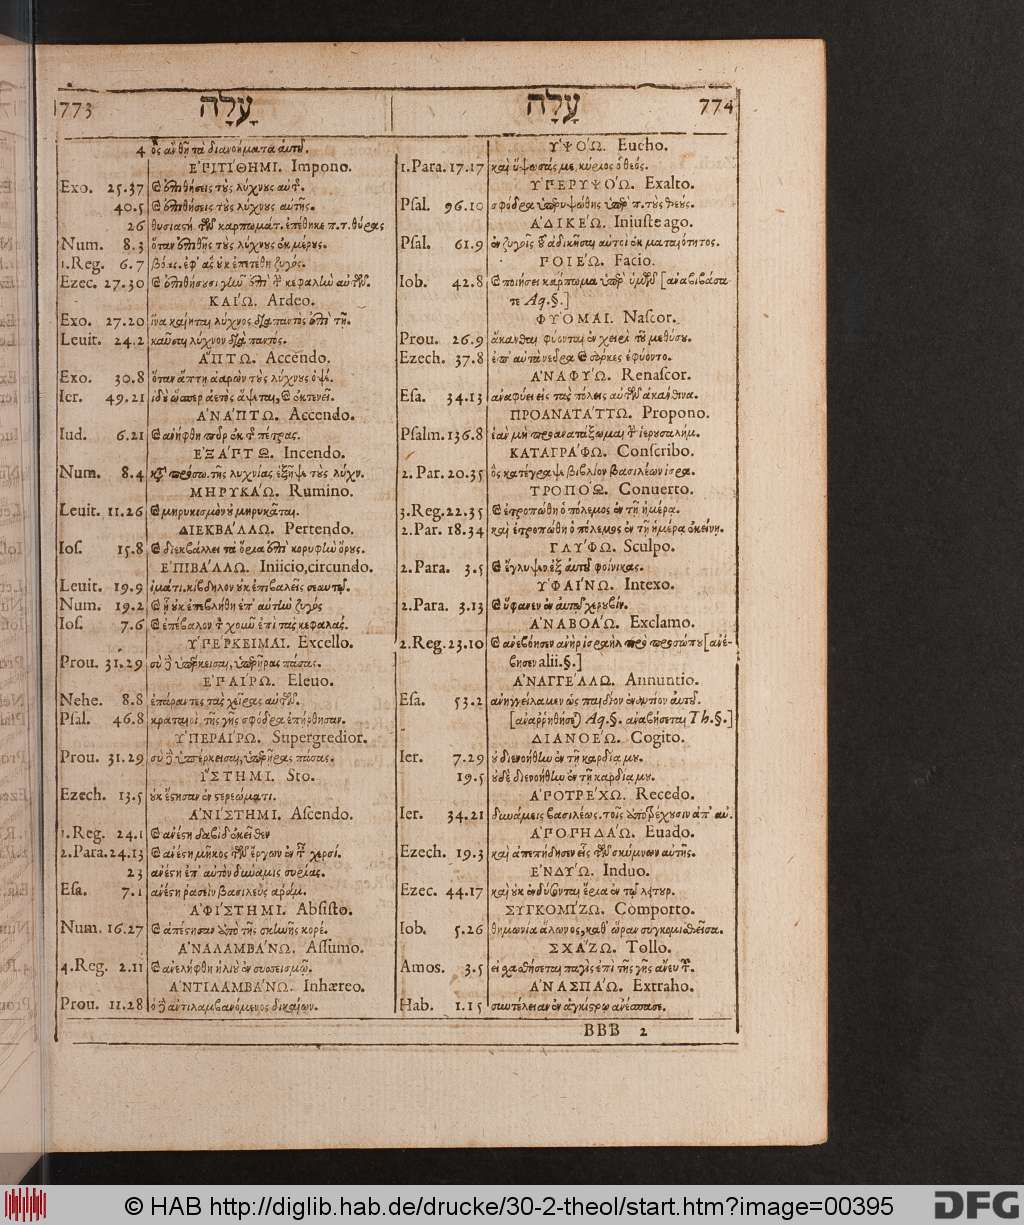 773 עָלָה
4 ὃς ἂν θῇ τὰ διανοήματα αὐτοῦ.
ΕΠΙΤΙΘΗΜΙ. Impono.
Exo. 25.37 καὶ ἐπιθήσεις τοὺς λύχνους αὐτῆς.
40.5 καὶ ἐπιθήσεις τοὺς λύχνους αὐτῆς.
26 θυσιαστή. τῶν καρπωμάτ. ἐπέθηκε π. τ. θύρας
Num. 8.3 ὅταν ἐπιθῇς τοὺς λύχνους ἐκ μέρους.
1.Reg. 6.7 βόας. ἐφ' ἃς οὐκ ἐπετέθη ζυγός.
Ezec. 27.30 καὶ ἐπιθήσουσι γῆν ἐπὶ τὴν κεφαλὴν αὐτῶν.
ΚΑΙΩ. Ardeo.
Exo. 27.20 ἵνα καίηται λύχνος διαπαντὸς ἐπὶ τῆ.
Leuit. 24.2 καῦσαι λύχνον διαπαντός.
ἍΠΤΩ. Accendo.
Exo. 30.8 ὅταν ἅπτῃ ἀαρὼν τοὺς λύχνους ὀψέ.
Ier. 49.21 ἰδοὺ ὥσπερ ἀετὸς ἅψεται, καὶ ἐκτενεῖ.
ἈΝΑΠΤΩ. Accendo.
Iud. 6.21 καὶ ἀνήφθη πῦρ ἐκ τῆς πέτρας.
ΕΞΑΠΤΩ. Incendo.
Num. 8.4 κατὰ πρόσω. τῆς λυχνίας ἐξῆψε τοὺς λύχν.
ΜΗΡΥΚΑΩ. Rumino.
Leuit. 11.26 καὶ μηρυκισμὸν οὐ μηρυκᾶται.
ΔΙΕΚΒΑΛΛΩ. Pertendo.
Ios. 15.8 καὶ διεκβάλλει τὰ ὅρια ἐπὶ κορυφὴν ὄρους.
ΕΠΙΒΑΛΛΩ. Iniicio, circundo.
Leuit. 19.9 ἱμάτι. κίβδηλον οὐκ ἐπιβαλεῖς σεαυτῷ.
Num. 19.2 καὶ ᾗ οὐκ ἐπεβλήθη ἐπ' αὐτὴν ζυγός
Ios. 7.6 καὶ ἐπέβαλον τὸν χοῦν ἐπὶ τὰς κεφαλάς.
ΥΠΕΡΚΕΙΜΑΙ. Excello.
Prou. 31.29 σὺ δὲ ὑπέρκεισαι, ὑπερῆρας πάσας.
ΕΠΑΙΡΩ. Eleuo.
Nehe. 8.8 ἐπάραντες τὰς χεῖρας αὐτῶν.
Psal. 46.8 κραταιοὶ τῆς γῆς σφόδρα ἐπήρθησαν.
ΥΠΕΡΑΙΡΩ. Supergredior.
Prou. 31.29 σὺ δὲ ὑπέρκεισαι, ὑπερῆρας πάσας.
ἽΣΤΗΜΙ. Sto.
Ezech. 13.5 οὐκ ἔστησαν ἐν στερεώματι.
ἈΝΙΣΤΗΜΙ. Ascendo.
1.Reg. 24.1 καὶ ἀνέστη δαβὶδ ἐκεῖθεν
2.Para. 24.13 καὶ ἀνέστη μῆκος τῶν ἔργων ἐν τῇ χερσί.
23 ἀνέστη ἐπ' αὐτὸν δύναμις συρίας.
Esa. 7.1 ἀνέστη ῥασεὶν βασιλεὺς ἀράμ.
ἈΦΙΣΤΗΜΙ. Absisto.
Num. 16.27 καὶ ἀπέστησαν ἀπὸ τῆς σκηνῆς κορέ.
ἈΝΑΛΑΜΒΑΝΩ. Assumo.
4.Reg. 2.11 καὶ ἀνελήφθη ἠλιοὺ ἐν συσσεισμῷ.
ἈΝΤΙΛΑΜΒΑΝΩ. Inhæreo.
Prou. 11.28 ὁ δὲ ἀντιλαμβανόμενος δικαίων.
עָלָה 774
ὙΨΟΩ. Eucho.
1.Para. 17.17 καὶ ὕψωσάς με, κύριος ὁ θεός.
ὙΠΕΡΥΨΟΩ. Exalto.
Psal. 96.10 σφόδρα ὑπερυψώθης ὑπὲρ π. τοὺς θεούς.
ἈΔΙΚΕΩ. Iniuste ago.
Psal. 61.9 ἐν ζυγοῖς τοῦ ἀδικῆσαι αὐτοὶ ἐκ ματαιότητος.
ΠΟΙΕΩ. Facio.
Iob. 42.8 καὶ ποιήσει κάρπωμα ὑπὲρ ὑμῶν [ἀναβιβάσα-
τε Aq.§.]
ΦΥΟΜΑΙ. Nascor.
Prou. 26.9 ἄκανθαι φύονται ἐν χειρὶ τοῦ μεθύσου.
Ezech. 37.8 ἐπ' αὐτὰ νεῦρα καὶ σάρκες ἐφύοντο.
ἈΝΑΦΥΩ. Renascor.
Esa. 34.13 ἀναφύει εἰς τὰς πόλεις αὐτῶν ἀκάνθινα.
ΠΡΟΑΝΑΤΑΤΤΩ. Propono.
Psalm. 136.8 ἐὰν μὴ προανατάξωμαι τὴν ἱερουσαλήμ.
ΚΑΤΑΓΡΑΦΩ. Conscribo.
2. Par. 20.35 ὃς κατέγραψε βιβλίον βασιλέων ἰσρα.
ΤΡΟΠΟΩ. Conuerto.
3.Reg. 22.35 καὶ ἐτροπώθη ὁ πόλεμος ἐν τῇ ἡμέρᾳ.
2. Par. 18.34 καὶ ἐτροπώθη ὁ πόλεμος ἐν τῇ ἡμέρᾳ ἐκείνῃ.
ΓΛΥΦΩ. Sculpo.
2. Para. 3.5 καὶ ἔγλυψεν ἐξ αὐτοῦ φοίνικας.
ὙΦΑΙΝΩ. Intexo.
2. Para. 3.13 καὶ ὕφανεν ἐν αὐτῷ χερουβίν.
ἈΝΑΒΟΑΩ. Exclamo.
2.Reg. 23.10 καὶ ἀνεβόησεν ἀνὴρ ἰσραὴλ πρὸ προσώπου [ἀνέ-
βησεν alii.§.]
ἈΝΑΓΓΕΛΛΩ. Annuntio.
Esa. 53.2 ἀνηγγείλαμεν ὡς παιδίον ἐναντίον αὐτοῦ.
[ἀναῤῥηθήσεται Aq.§. ἀναβήσεται Th.§.]
ΔΙΑΝΟΕΩ. Cogito.
Ier. 7.29 οὐ διενοήθην ἐν τῇ καρδίᾳ μου.
19.5 οὐδὲ διενοήθην ἐν τῇ καρδίᾳ μου.
ἈΠΟΤΡΕΧΩ. Recedo.
Ier. 34.21 δύναμεις βασιλέως. τοῖς ἀποτρέχουσιν ἀπ' αὐ.
ἈΠΟΠΗΔΑΩ. Euado.
Ezech. 19.3 καὶ ἀπεπήδησεν εἷς τῶν σκύμνων αὐτῆς.
ΕΝΔΥΩ. Induo.
Ezec. 44.17 καὶ οὐκ ἐνδύσονται ἔρια ἐν τῷ λειτουρ.
ΣΥΓΚΟΜΙΖΩ. Comporto.
Iob. 5.26 θημωνία ἅλωνος, καθ' ὥραν συγκομισθεῖσα.
ΣΧΑΖΩ. Tollo.
Amos. 3.5 εἰ σχασθήσεται παγὶς ἐπὶ τῆς γῆς ἄνευ τοῦ.
ἈΝΑΣΠΑΩ. Extraho.
Hab. 1.15 συντέλειαν ἐν ἀγκίστρῳ ἀνέσπασε.
BBB 2
© HAB http://diglib.hab.de/drucke/30-2-theol/start.htm?image=00395
DFG